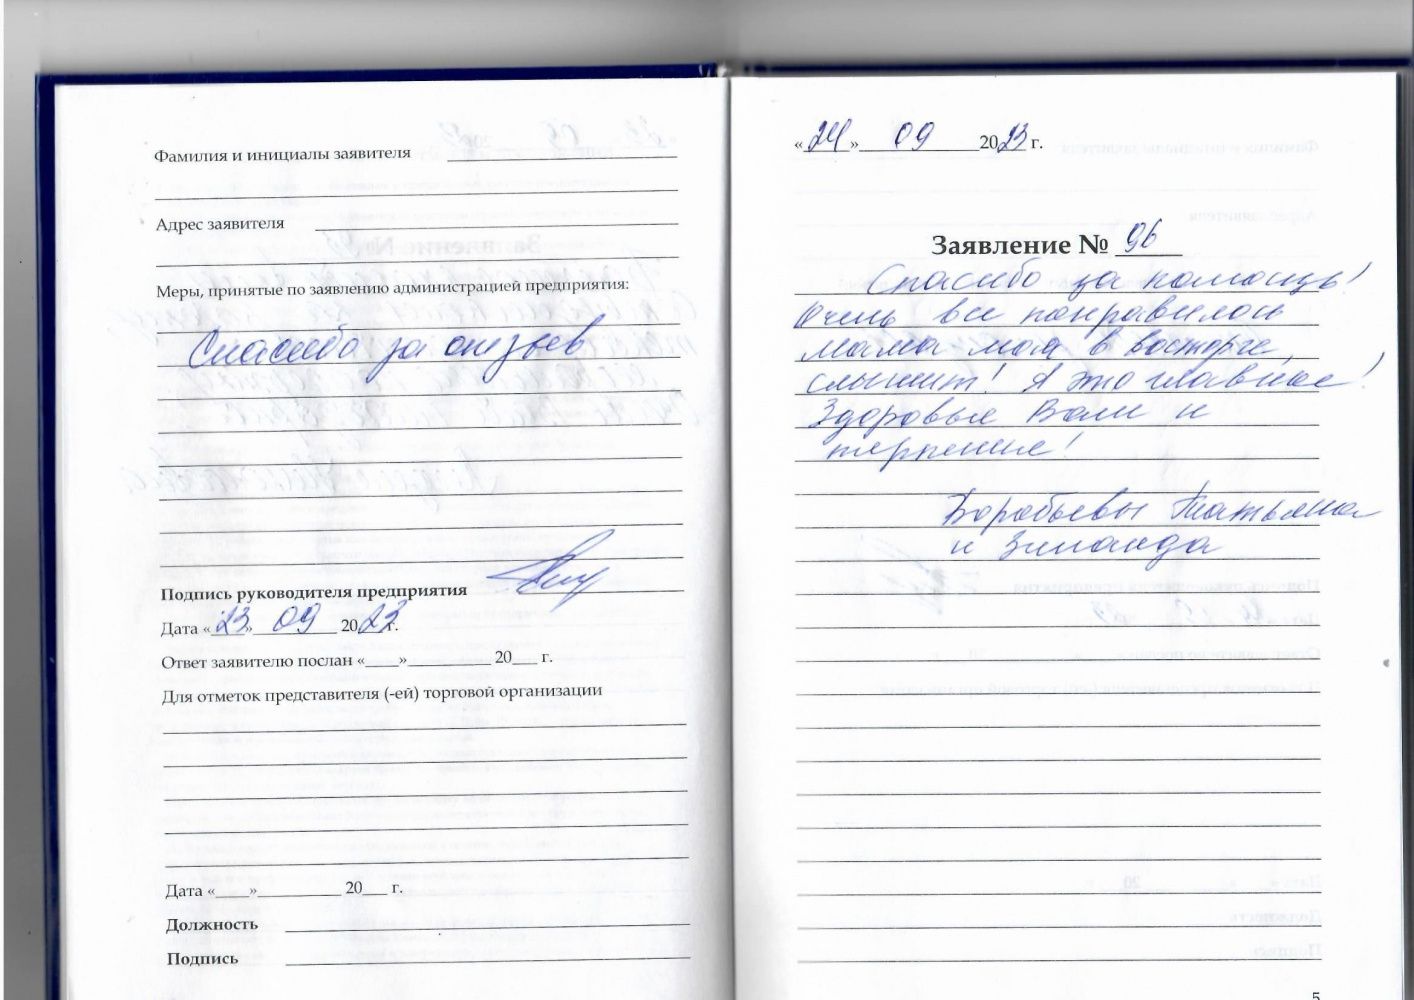 Фамилия и инициалы заявителя
Адрес заявителя
Меры, принятые по заявлению администрацией предприятия:
Спасибо за отзыв
Подпись руководителя предприятия
Дата «23» 09 2023 г.
Ответ заявителю послан «____»__________ 20___ г.
Для отметок представителя (-ей) торговой организации
Дата «____»__________ 20___ г.
Должность
Подпись
«24» 09 2023 г.
Заявление № 96
Спасибо за помощь!
Очень все понравилось
Мама моя в восторге,
слышит! А это главное!
Здоровья Вам и
терпения!
Воробьевы Татьяна
и
5